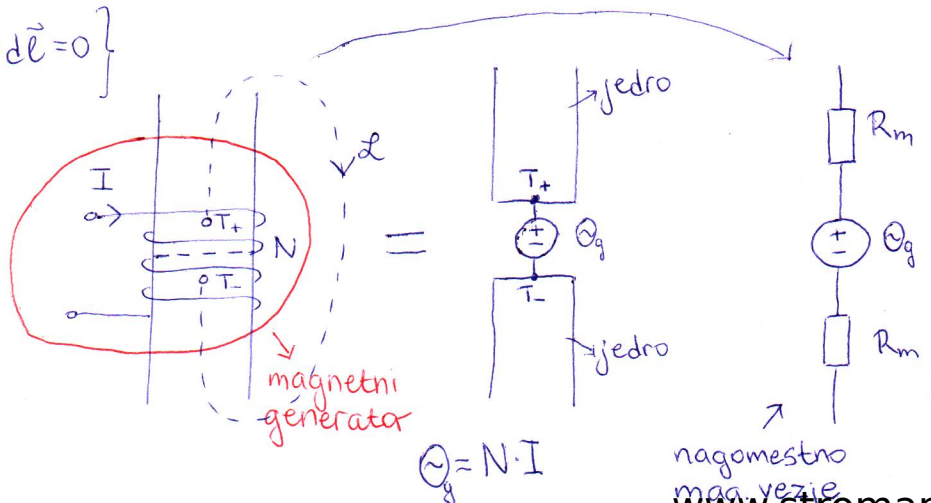 dℓ⃗ = 0 }
I
T₊
N
T₋
ℒ
magnetni
generator
=
jedro
T₊
+
−
Θg
T₋
jedro
Θg = N·I
Rm
+
−
Θg
Rm
nagomestno
mag. vezje